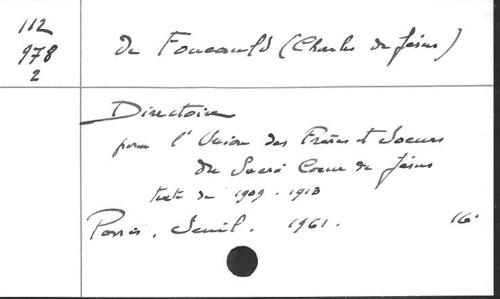 112
978
2
de Foucauld (Charles de Jésus)
Directoire
pour l'Union des Frères et Soeurs
du Sacré Coeur de Jésus
texte de 1909-1913
Paris, Seuil, 1961. 16°